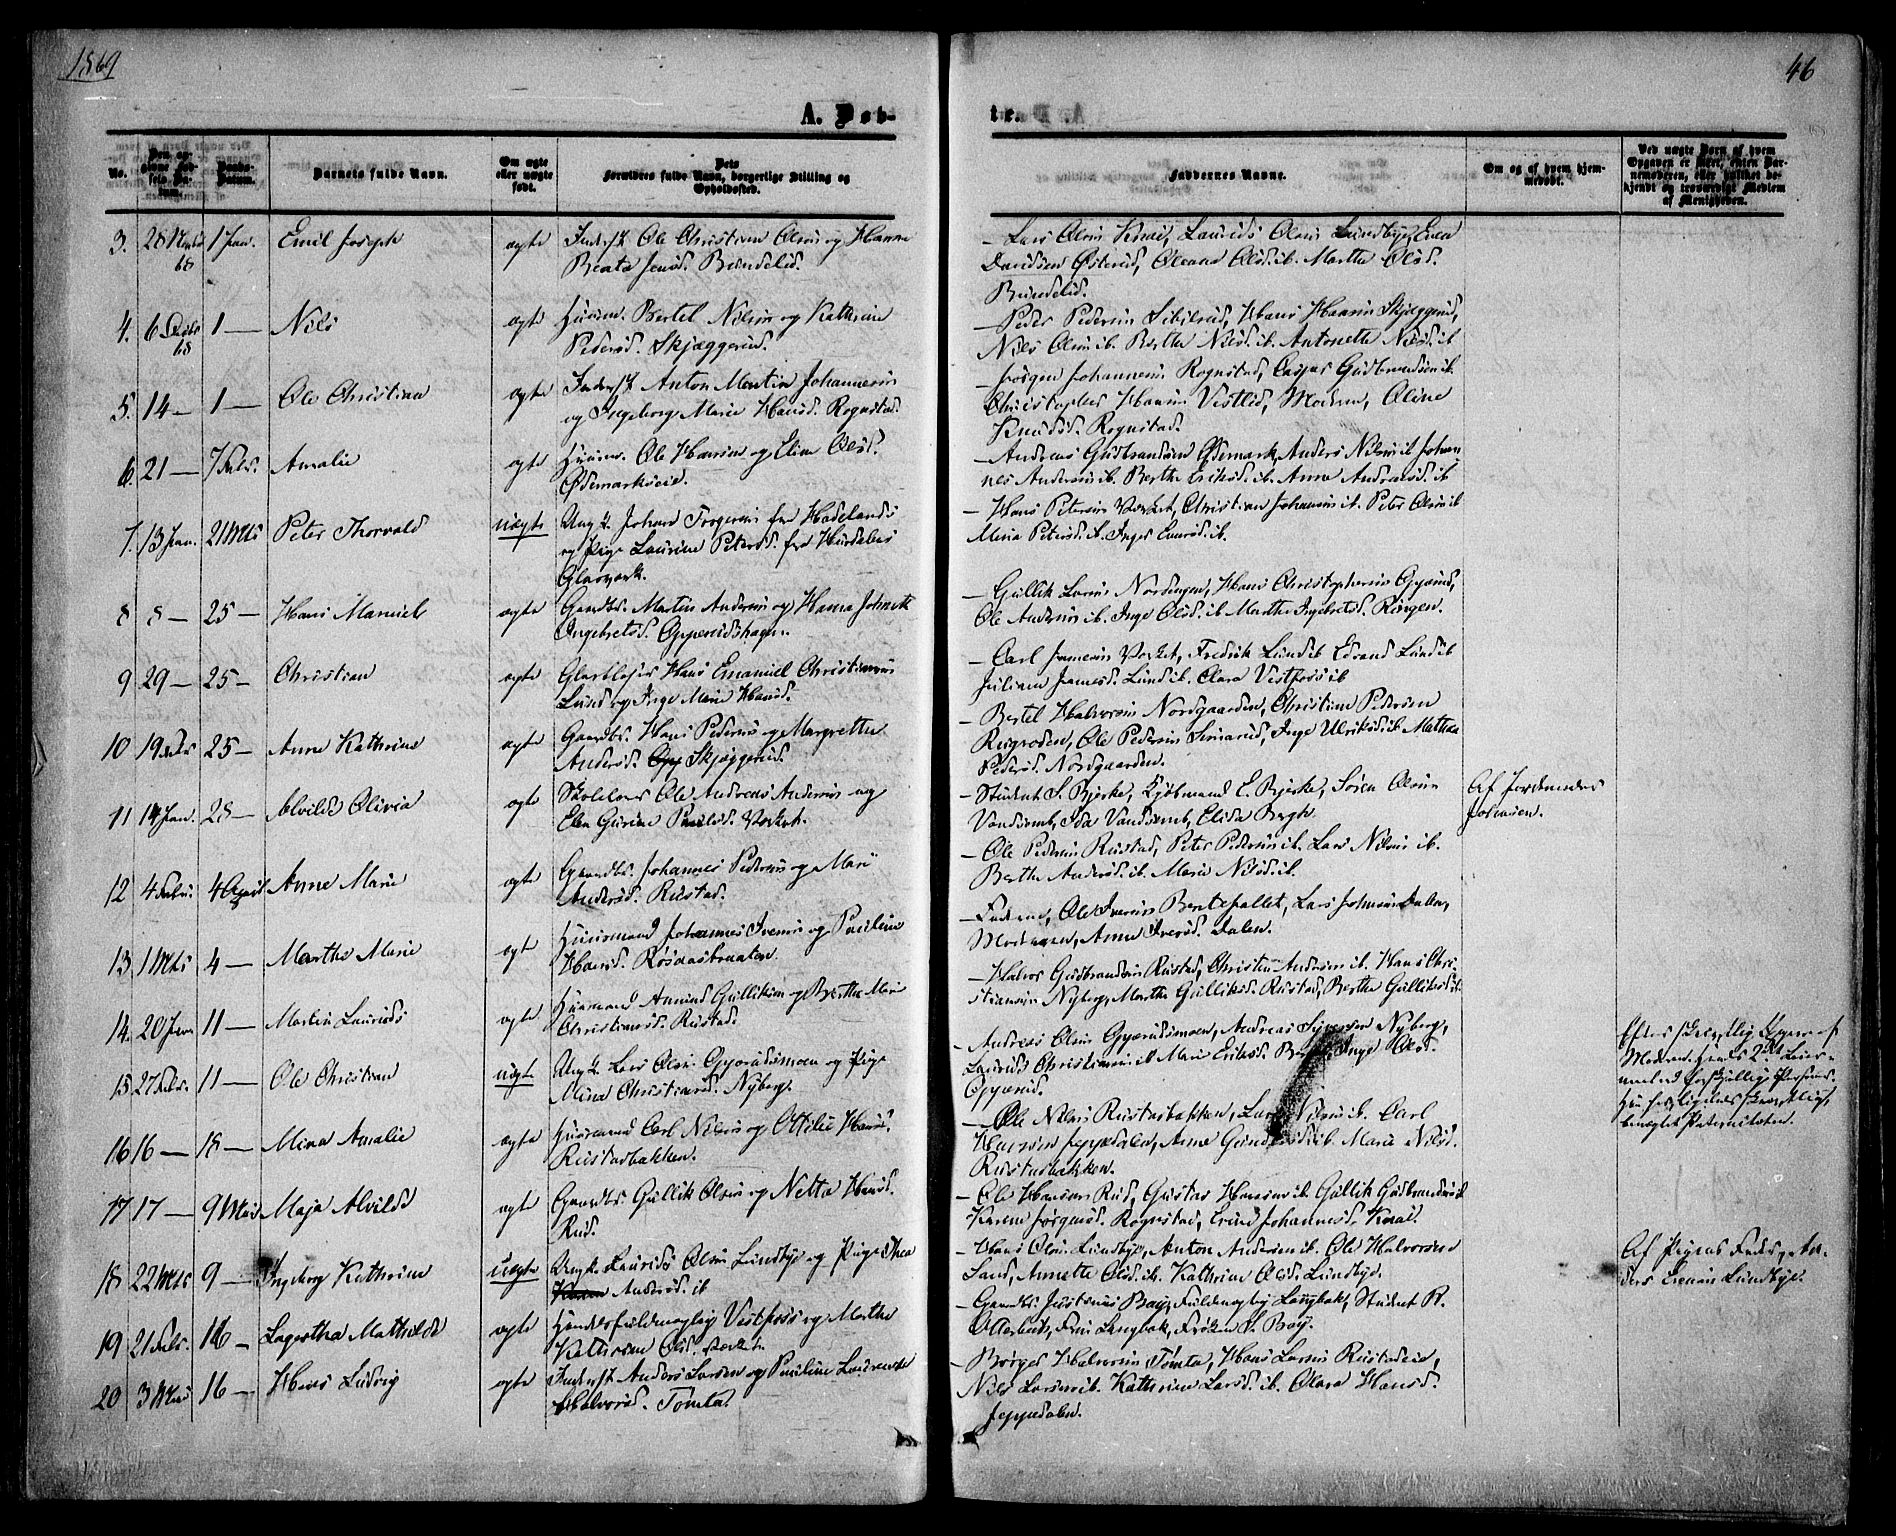 1869
46
A. Døb-
te.
No.
Den op-
givne Fød-
sels Da-
tum.
Daabs-
Datum.
Barnets fulde Navn.
Om ægte
eller uægte
født.
Dets
Forældres fulde Navn, borgerlige Stilling og
Opholdssted.
Faddernes Navne.
Om og af hvem hjem-
medøbt.
Ved uægte Barn af hvem
Opgaven er skeet, enten Bar-
nemoderen, eller hvilket be-
kjendt og troværdigt Medlem
af Menigheden.
3. 28 68 1 Jan. Emil Joseph ægte Inderst Ole Christian Olsen og Hanne
Beate Jensd. Brendelid.
– Lars Olsen Knai, Laurids Olsen Lundbye, Even
Davidsen Østerud, Oleana Olsd. ib. Marthe Olsd.
Brendelid.
4. 6 Decbr 68 1 — Nils ægte Huusm. Bertel Nilsen og Kathrine
Pedersd. Skjæggerud.
– Peder Pedersen Sibilrud, Hans Hansen Skjæggerud,
Nils Olsen ib. Berthe Nilsd. ib. Antonette Nilsd. ib
5. 14 — 1 — Ole Christian ægte Inderst Anton Martin Johannesen
og Ingeborg Marie Hansd. Rognstad.
– Jørgen Johannesen Rognstad, Casper Gudbrandsen ib.
Christopher Hansen Vestlid, Moderen, Oline
Knudsd. Rognstad.
6. 21 — 7 Febr. Amalie ægte Huusm. Ole Hansen og Eline Olsd.
Ødemarkseie.
– Andreas Gudbrandsen Ødemark, Anders Nilsen ib Johan
nes Andersen ib. Berthe Eriksd. ib. Anne Andreasd. ib
7. 13 Jan. 21 Mts Peter Thorvald uægte Ungk. Johan Torgersen fra Hadelands
og Pige Laurine Petersd. fra Hurdals
Glasværk.
– Hans Petersen Værket, Christian Johansen ib. Peter Olsen ib
Maria Petersd. ib. Inger Evensd. ib.
8 8 — 25 — Hans Manuel ægte Gaardbr. Martin Andersen og Hanna Johnette
Ingebretsd. Opperudshagen.
– Gullik Larsen Nordengen, Hans Christophersen Gjørud,
Ole Andersen ib. Inge Olsd. ib Marthe Ingebretsd. Ringen.
9 29 — 25 — Christian ægte Glasblæser Hans Emanuel Christiansen
Lund og Inge Marie Hansd.
– Carl Jamesen Værket, Fredrik Lund ib Edvard Lund ib
Juliane Jamesd. Lund ib. Clara Vestfoss ib
10 19 Febr 25 — Anne Kathrine ægte Gaardbr. Hans Pedersen og Margrethe
Andersd. Skjæggerud.
– Bertel Halvorsen Nordgaarden, Christian Pedersen
Rugroden, Ole Pedersen Smerud, Inge Ulriksd. ib. Mathea
Pedersd. Nordgaarden.
11 14 Jan. 28 — Alvilde Olivia ægte Skolelærer Ole Andreas Andersen og
Elen Gurine Poulsd. Værket.
– Student S. Bjerke, Kjøbmand E. Bjerke, Søren Olsen
Vandsemb, Ida Vandsemb, Elida Bergh.
Af Jordemoder
Johnsen.
12 4 Febr. 4 April Anne Marie ægte Gaardbr. Johannes Pedersen og Mari
Andersd. Rustad.
– Ole Pedersen Rustad, Peter Pedersen ib. Lars Nilsen ib.
Berthe Andersd. ib. Marie Nilsd. ib.
13 1 Mts 4 — Marthe Marie ægte Huusmand Johannes Iversen og Pauline
Hansd. Røsaasbraaten.
– Faderen, Ole Iversen Bentepallet, Lars Johnsen Dalen,
Moderen, Anne Iversd. Dalen.
14. 20 Jan 11 — Martin Laurids ægte Huusmand Amund Gulliksen og Berthe Marie
Christiansd. Rustad.
– Halvor Gudbrandsen Rustad, Christen Andersen ib. Hans Chri-
stiansen Nyberg, Marthe Gulliksd. Rustad, Berthe Gulliksd. ib.
15 27 Febr. 11 — Ole Christian uægte Ungk. Lars Olsen Gjørudsmoen og Pige
Mina Christiansd. Nyberg.
– Andreas Olsen Gjørudsmoen, Andreas Syversen Nyberg,
Laurids Christiansen ib Marie Eriksd. Inge Olsd.
Gjørud.
Efter skriftlig Opgave af
Moderen. Hendes 2det Leier-
maal med forskjellige Personer.
benægtet Paterniteten.
16 16 — 18 — Mina Amalie ægte Huusmand Carl Nilsen og Ottilie Hansd.
Rustadbakken.
– Ole Nilsen Rustadbakken, Lars Nilsen ib. Carl
Hansen Jeppedalen, Anne ib. Marie Nilsd.
Rustadbakken.
17 17 — 9 Mai Maja Alvilde ægte Gaardbr. Gullik Olsen og Netta Hansd.
Rud.
– Ole Hansen Rud, Gustav Hansen ib. Gullik Gudbrandsen ib
Karen Jørgensd. Rognstad, Johannesd. Knai.
18 22 Mts 9 — Ingeborg Kathrine uægte Ungk. Laurids Olsen Lundbye og Pige Thea
Andersd. ib
– Hans Olsen Lundbye, Anton Andersen ib. Ole Halvorsen
Sand, Annette Olsd. ib. Kathrine Olsd. Lundbye.
Af Pigens Fader, An-
ders Evensen Lundbye.
19 21 Febr. 16 — Lagertha Mathilde ægte Handelsfuldmægtig Vestfoss og Marthe
Kathrine Olsd. Værket.
– Gaardbr. Justnæs Bay, Fuldmægtig Langbak, Student R.
Otterbeck, Frue Langbak, Frøken S. Bay.
20 3 Mai 16 — Hans Ludvig ægte Inderst Anders Larsen og Pauline Laurense
Halvorsd. Tømte.
– Børger Halvorsen Tømte, Hans Larsen Rustadeie,
Nils Larsen ib. Kathrine Larsd. ib. Olava Hansd.
Jeppedalen.